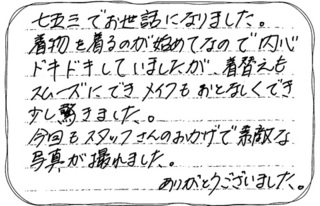 七五三でお世話になりました。
着物を着るのが始めてなので内心
ドキドキしていましたが、着替えも
スムーズにでき メイクもおとなしくでき
少し驚きました。
今回もスタッフさんのおかげで素敵な
写真が撮れました。
ありがとうございました。